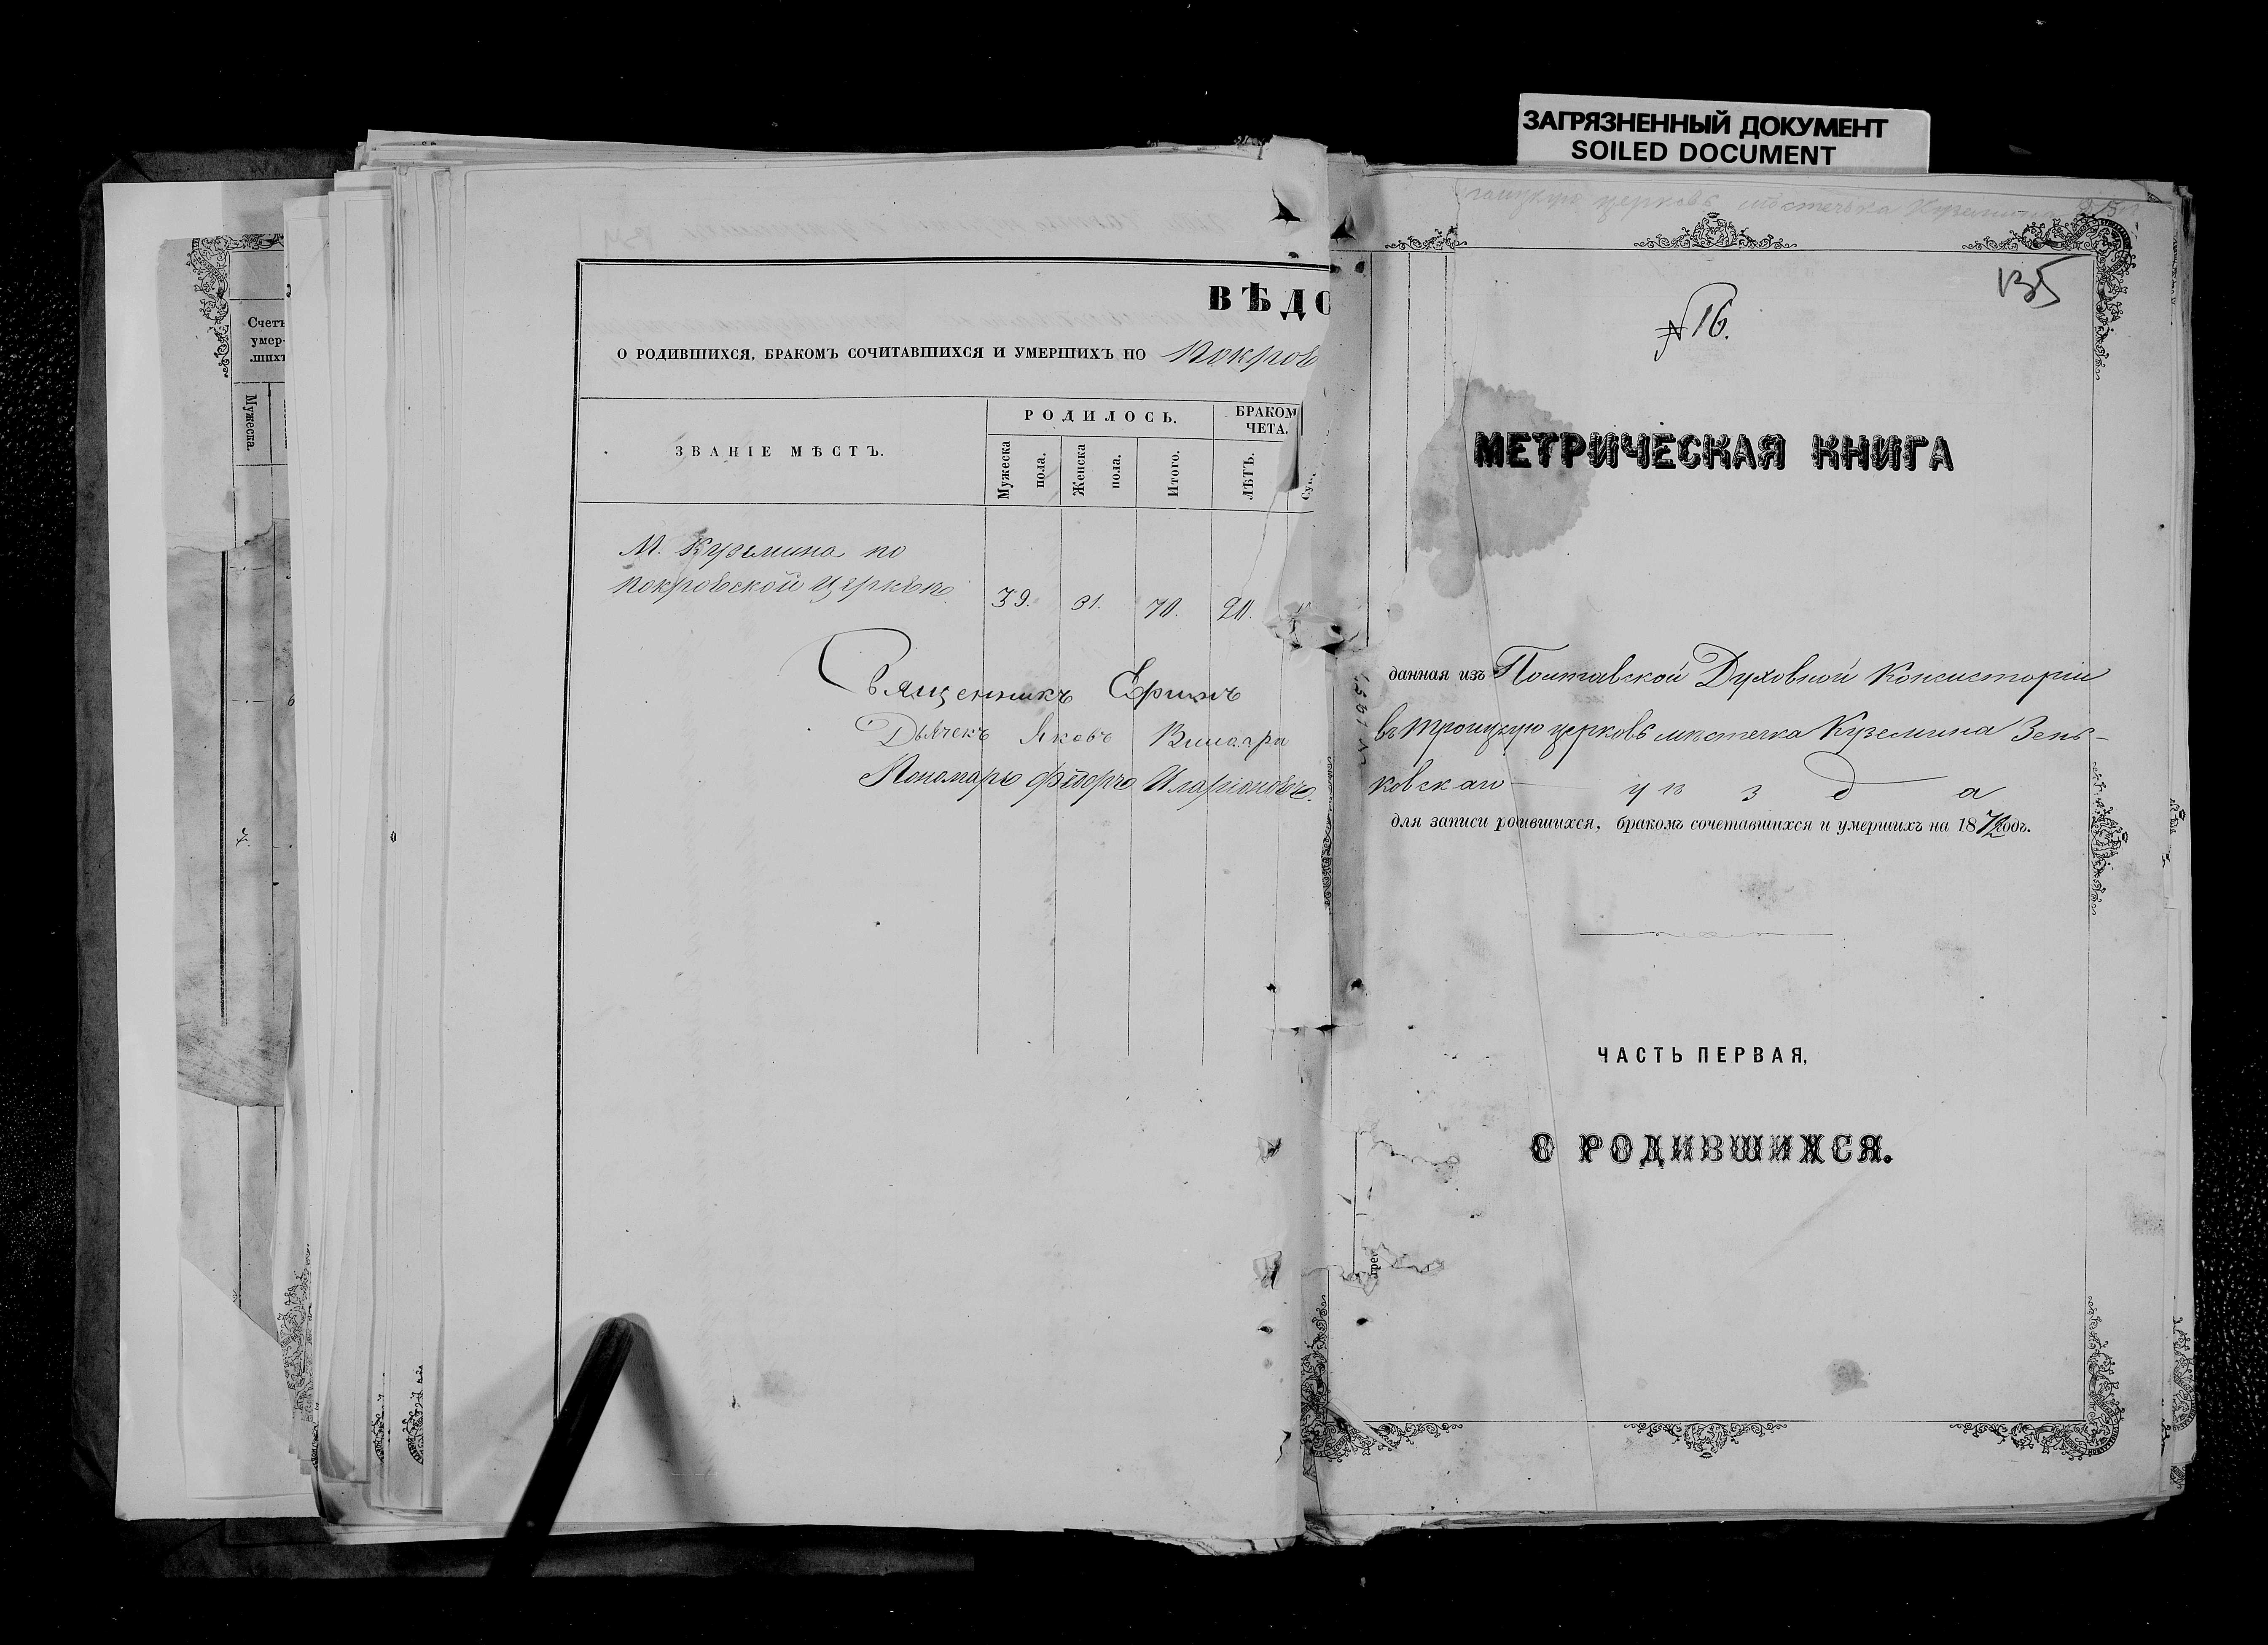 ЗАГРЯЗНЕННЫЙ ДОКУМЕНТ
SOILED DOCUMENT
Счетъ
умер-
шихъ
Мужеска.
ВѢДО
О РОДИВШИХСЯ, БРАКОМЪ СОЧИТАВШИХСЯ И УМЕРШИХЪ ПО Покров
ЗВАНІЕ МѢСТЪ.
РОДИЛОСЬ.
БРАКОМ
ЧЕТА.
Мужеска пола.
Женска пола.
Итого.
ЛѢТЪ.
М. Куземина по
Покровской Церкви
39. 31. 70. 20.
Священникъ Ефимъ
Дьячекъ Яковъ Виногра
Пономарь Фёдоръ Иларіоновъ.
церковь мѣстечка Куземина
135
№ 16.
МЕТРИЧЕСКАЯ КНИГА
данная изъ Полтавской Духовной Консисторіи
въ Троицкую церковь мѣстечка Куземина Зень-
ковскаго уѣзда
для записи родившихся, бракомъ сочетавшихся и умершихъ на 1872 годъ.
ЧАСТЬ ПЕРВАЯ,
О РОДИВШИХСЯ.